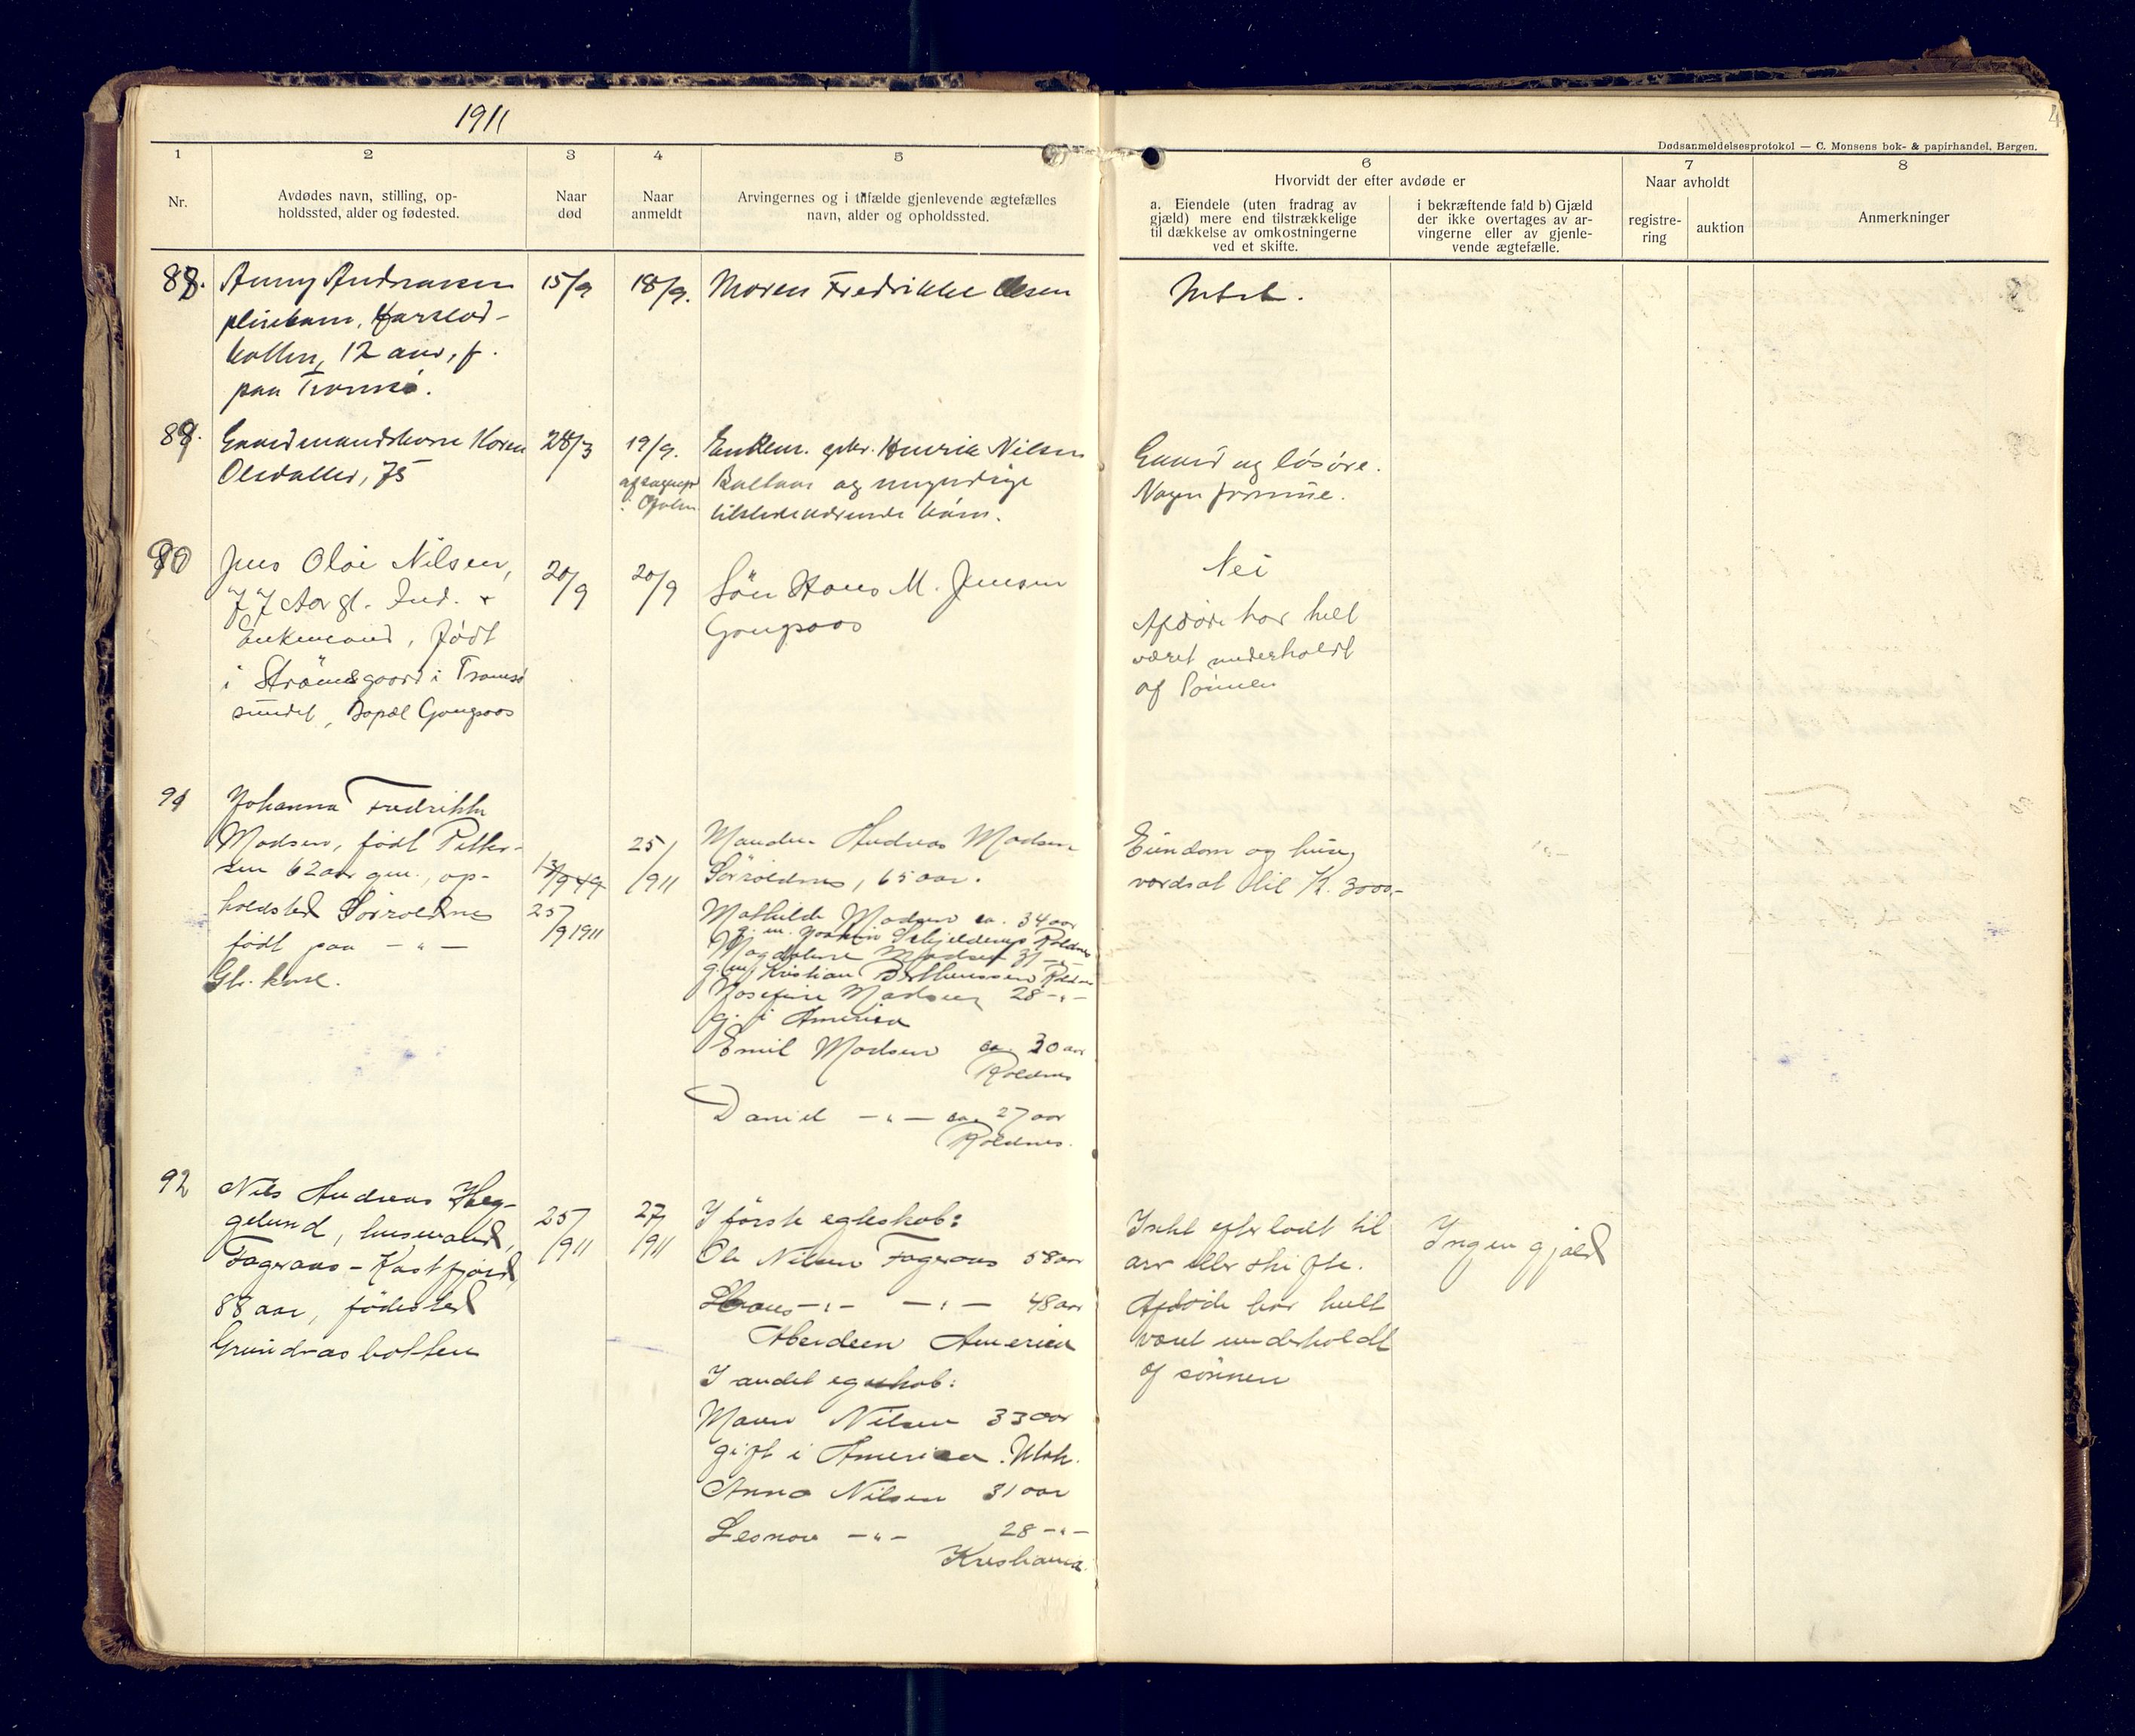 1911
Dødsanmeldelsesprotokol — C. Monsens bok- & papirhandel, Bergen.
1
2
3
4
5
6
7
8
Nr.
Avdødes navn, stilling, op-
holdssted, alder og fødested.
Naar
død
Naar
anmeldt
Arvingernes og i tilfælde gjenlevende ægtefælles
navn, alder og opholdssted.
Hvorvidt der efter avdøde er
a. Eiendele (uten fradrag av
gjæld) mere end tilstrækkelige
til dækkelse av omkostningerne
ved et skifte.
i bekræftende fald b) Gjæld
der ikke overtages av ar-
vingerne eller av gjenle-
vende ægtefælle.
Naar avholdt
registre-
ring
auktion
Anmerkninger
88.
Anny Andreassen
pleiebarn,
12 aar, f.
paa Tromsø.
15/9
18/9.
Moren Fredrikke Olsen
Intet.
89.
Gaardmandskone Karen
75
28/3
19/9.
Enkem. gbr. Henrik Nilsen
og umyndige
tilstedeværende børn.
Gaard og løsøre.
90
Jens Olai Nilsen,
77 Aar gl. Ind.
Enkemand, født
i Strömsgaard i Tromsö
sundet, Bopæl Gaugsaas
20/9
20/9
Sön Hans M. Jensen
Gaugsaas
Nei
Afdöde har helt
været underholdt
af Sönnen
91
Johanna Fredrikke
Madsen, født Petter-
sen 62 aar gm., op-
holdsted Sörroldnes
født paa — " —
Gb. kone.
13/9 49
25/9 1911
25/
1911
Manden Andreas Madsen
Sörroldnes, 65 aar.
Mathilde Madsen ca. 34 aar
g. m. Schjelderup Roldnes
Magdalene Madsen 31 — " —
g. m. Kristian Bertheussen Roldnes
Josefine Madsen 28 — " —
g. i America
Emil Madsen ca. 30 aar
Roldnes
Daniel — " — ca. 27 aar
Roldnes.
Eiendom og hus,
værdsat til K. 3000,-
92
Nils Andreas Heg-
gelund, husmand,
Fageraas - Kastfjord,
88 aar, födested
Grundvasbotten
25/
1911
27/
1911
I förste egteskab:
Ole Nilsen Fageraas 58 aar
Hans — " — — " — 48 aar
Aberdeen America
I andet egteskab:
Nilsen 33 aar
gift i America. Utah.
Anna Nilsen 31 aar
Leonore — " — 28 — " —
Kristiania
Intet efterladt til
arv eller skifte.
Afdöde har helt
været underholdt
af sönnen
Ingen gjæld